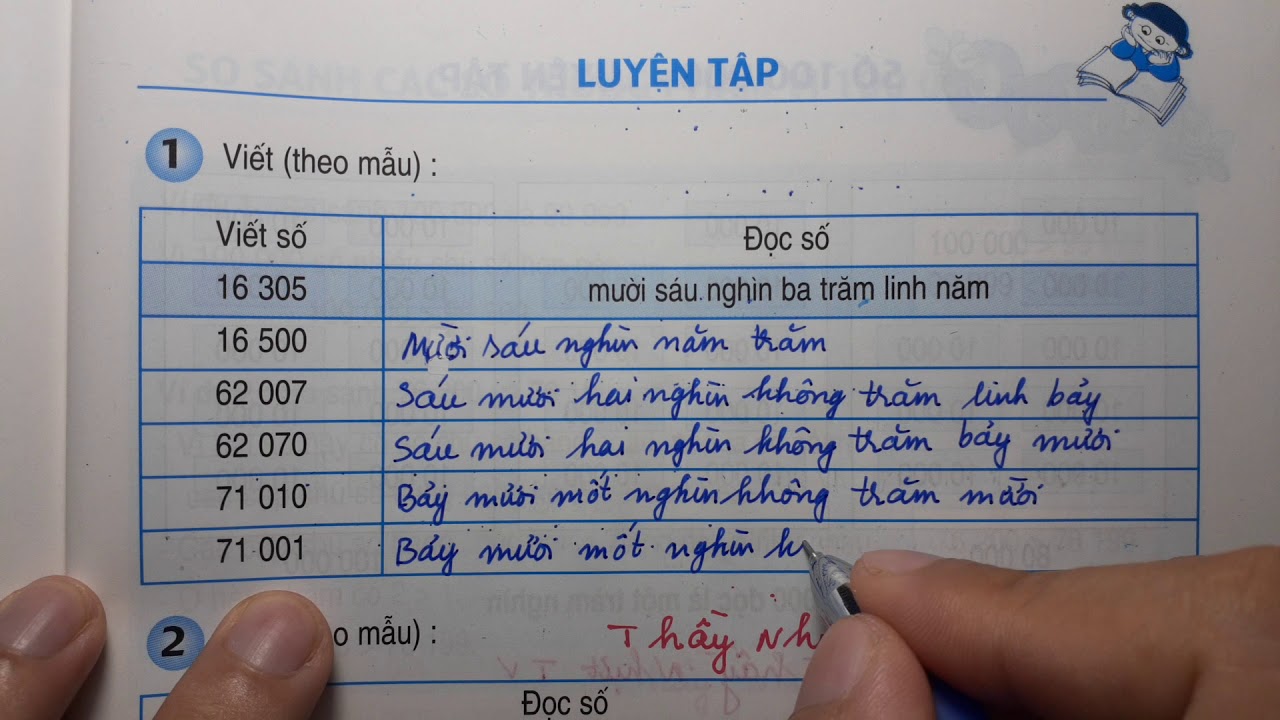 LUYỆN TẬP
1 Viết (theo mẫu) :
Viết số Đọc số
16 305 mười sáu nghìn ba trăm linh năm
16 500 Mười sáu nghìn năm trăm
62 007 Sáu mươi hai nghìn không trăm linh bảy
62 070 Sáu mươi hai nghìn không trăm bảy mươi
71 010 Bảy mươi mốt nghìn không trăm mười
71 001 Bảy mươi mốt nghìn k
2 o mẫu) :
Thầy Nh
Đọc số